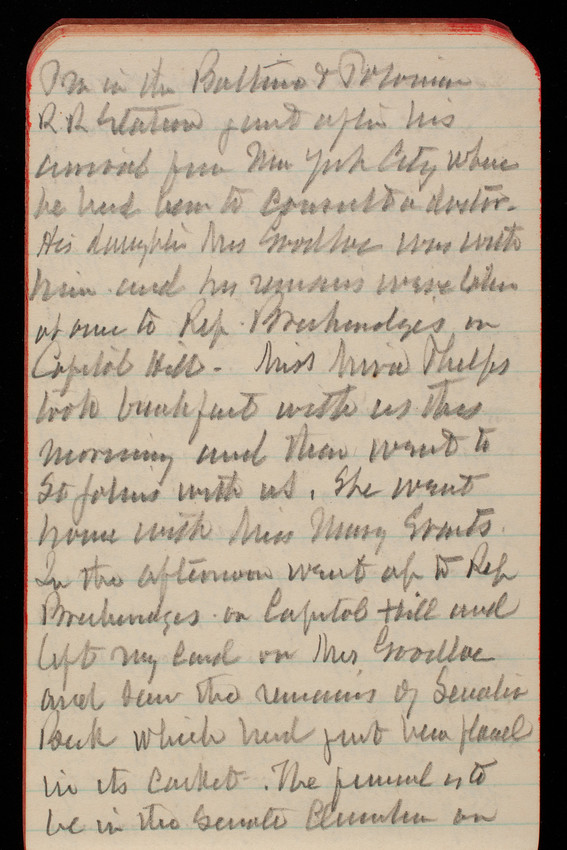 P.M. in the Baltimo & Potomac
R.R. Station just after his
arrival from New York City where
he had been to consult a doctor.
His daughter Mrs Goodloe was with
him and his remains were taken
at once to Rep. Breckenridges on
Capitol Hill - Miss Phelps
took breakfast with us this
morning and then went to
St Johns with us. She went
home with Miss Mary Evarts.
In the afternoon went up to Rep
Breckenridges on Capitol Hill and
left my card on Mrs Goodloe
and saw the remains of Senator
Beck which had just been placed
in its casket. The funeral is to
be in the Senate Chamber on